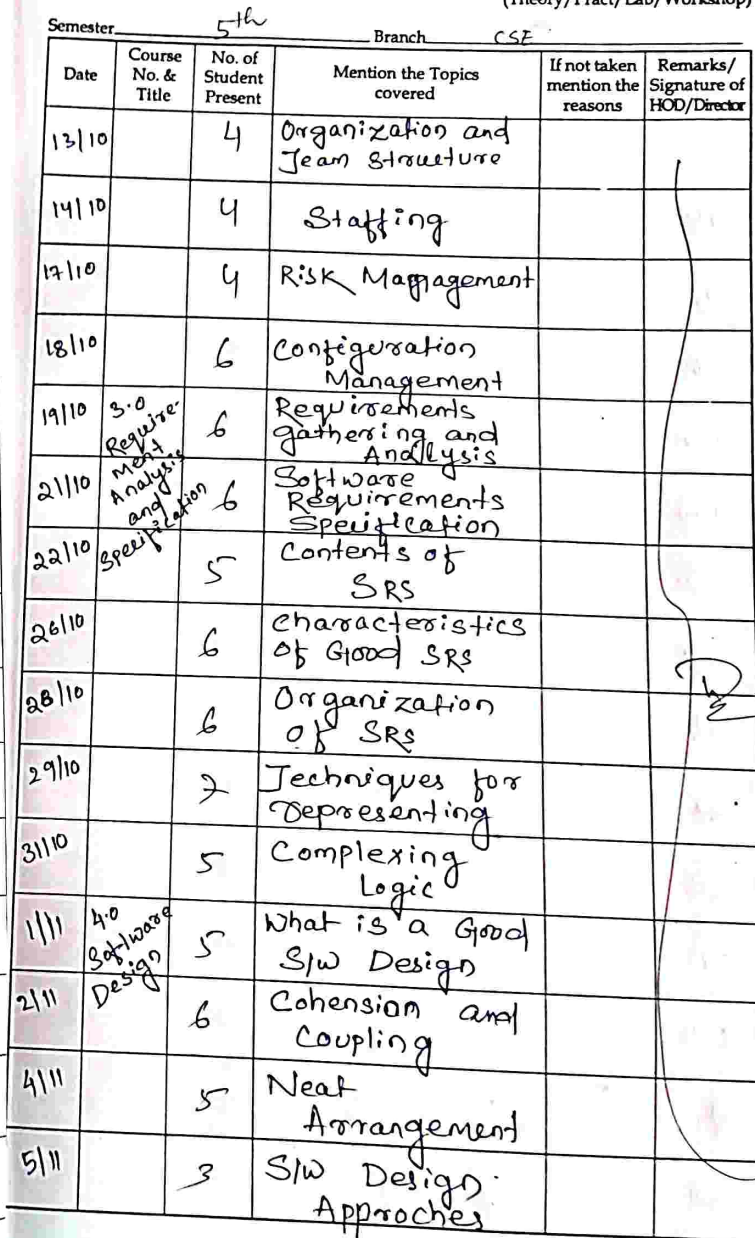 (Theory/Pract/Lab/Workshop)
Semester 5th Branch CSE
Date
Course No. & Title
No. of Student Present
Mention the Topics covered
If not taken mention the reasons
Remarks/ Signature of HOD/Director
13/10 4 Organization and
Team Structure
14/10 4 Staffing
17/10 4 Risk Mapnagement
18/10 6 Configuration
Management
3.0
Require-
ment
Analysis
and
Specification
19/10 6 Requirements
gathering and
Analysis
21/10 6 Software
Requirements
Specification
22/10 5 Contents of
SRS
26/10 6 Characteristics
Of Good SRS
28/10 6 Organization
of SRS
29/10 7 Techniques for
Depresenting
31/10 5 Complexing
Logic
4.0
Software
Design
1/11 5 What is a Good
S/w Design
2/11 6 Cohension and
Coupling
4/11 5 Neat
Arrangement
5/11 3 S/W Design
Approches